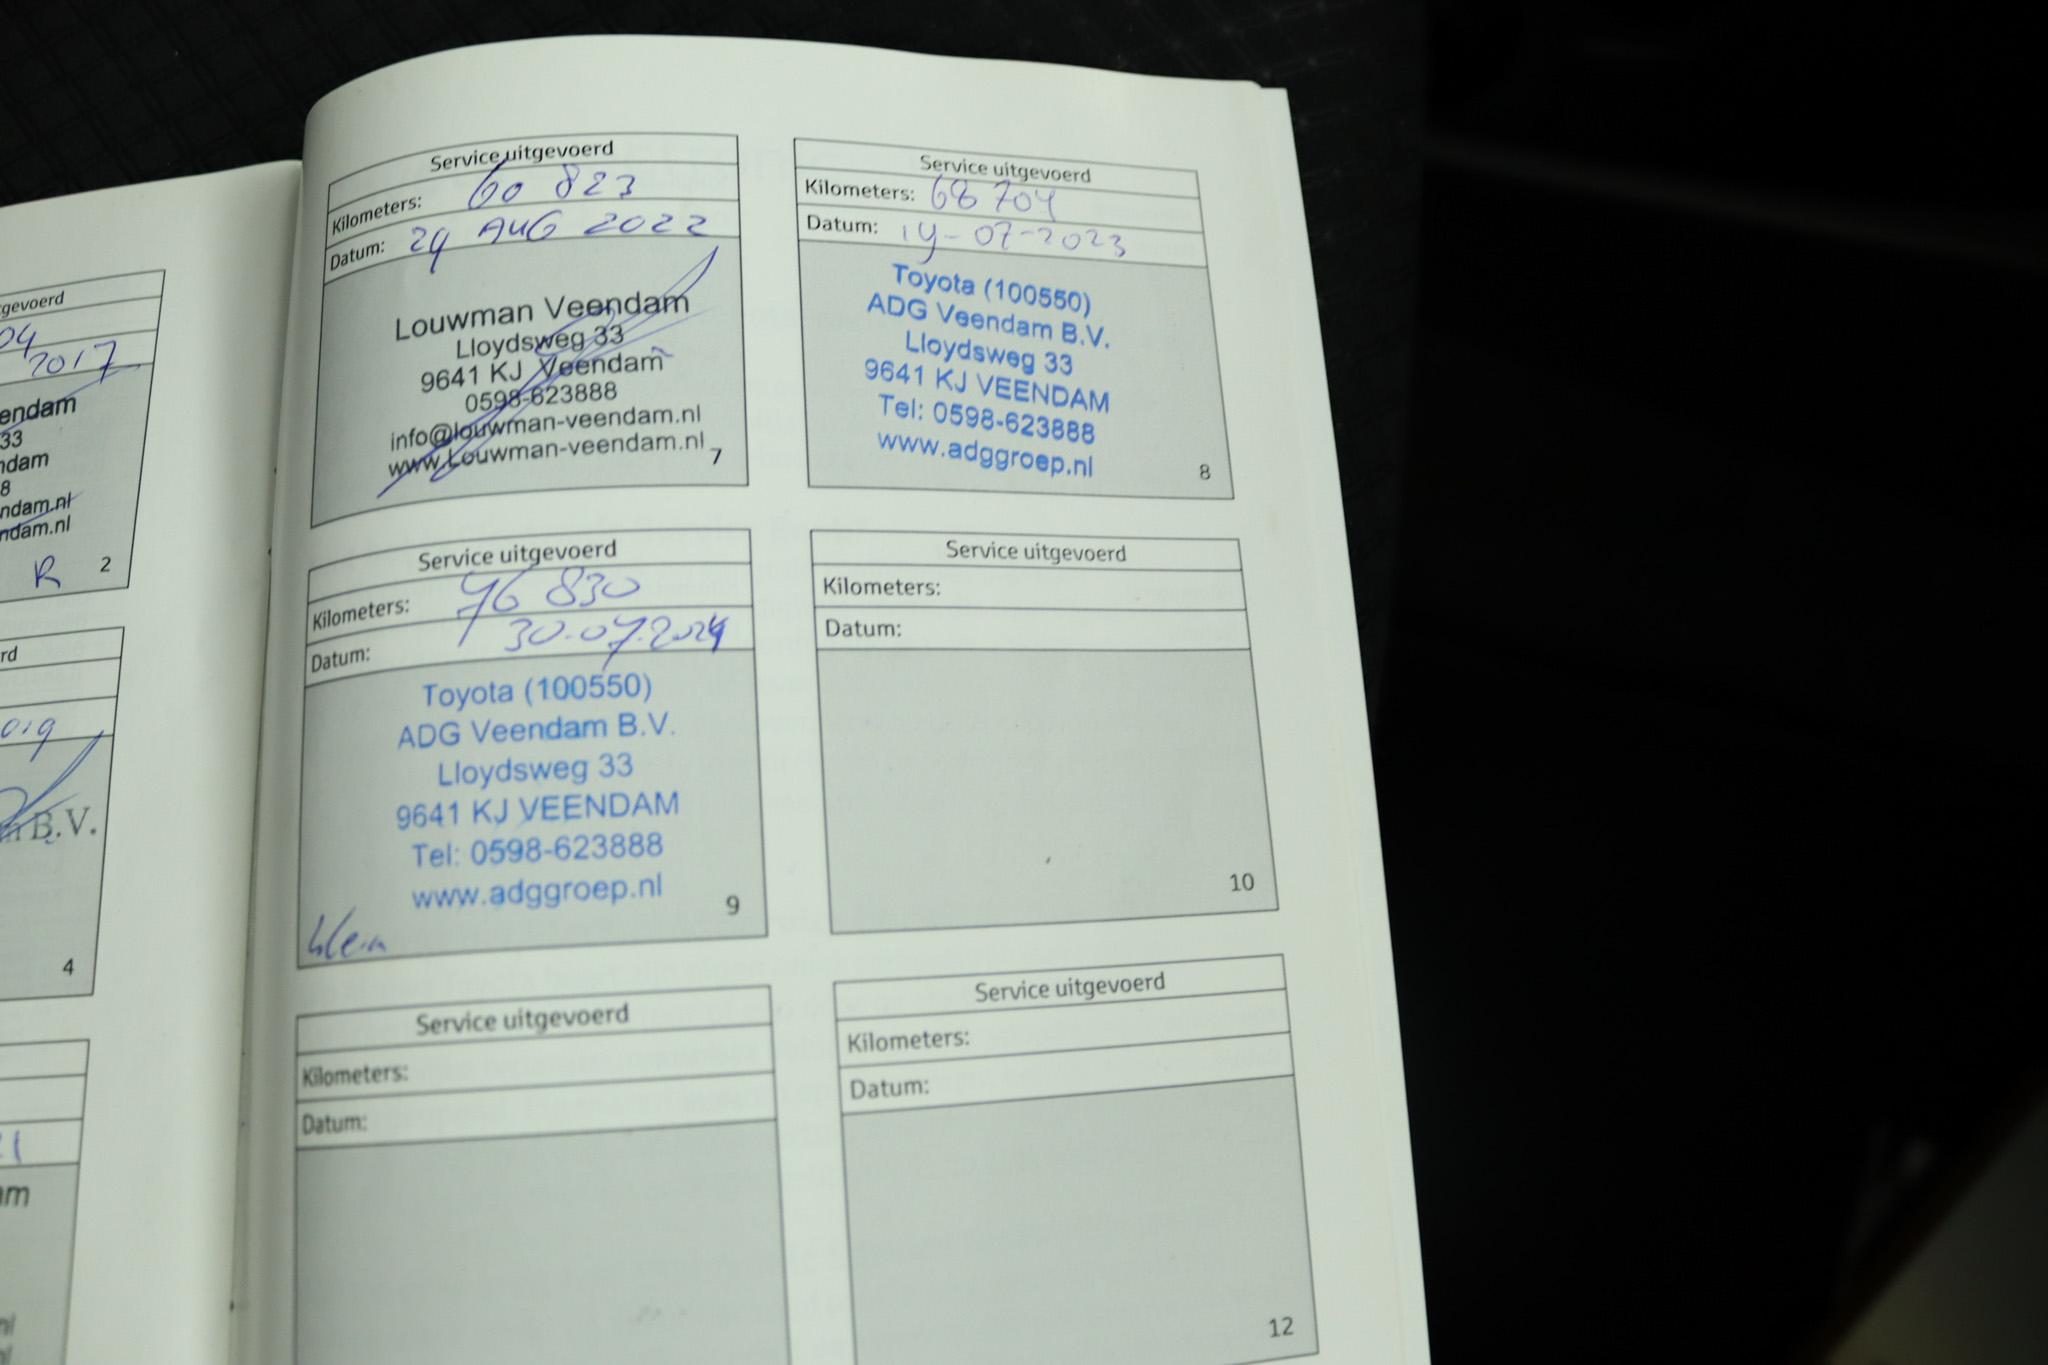 gevoerd
04
2017
endam
33
ndam
8
ndam.nl
ndam.nl
R 2
rd
B.V.
4
Service uitgevoerd
Kilometers: 60 823
Datum: 29 AUG 2022
Louwman Veendam
Lloydsweg 33
9641 KJ Veendam
0598-623888
info@louwman-veendam.nl
www.Louwman-veendam.nl
7
Service uitgevoerd
Kilometers: 68 704
Datum: 19-07-2023
Toyota (100550)
ADG Veendam B.V.
Lloydsweg 33
9641 KJ VEENDAM
Tel: 0598-623888
www.adggroep.nl
8
Service uitgevoerd
Kilometers: 76 830
Datum: 30-07-2024
Toyota (100550)
ADG Veendam B.V.
Lloydsweg 33
9641 KJ VEENDAM
Tel: 0598-623888
www.adggroep.nl
9
Service uitgevoerd
Kilometers:
Datum:
10
Service uitgevoerd
Kilometers:
Datum:
Service uitgevoerd
Kilometers:
Datum:
12